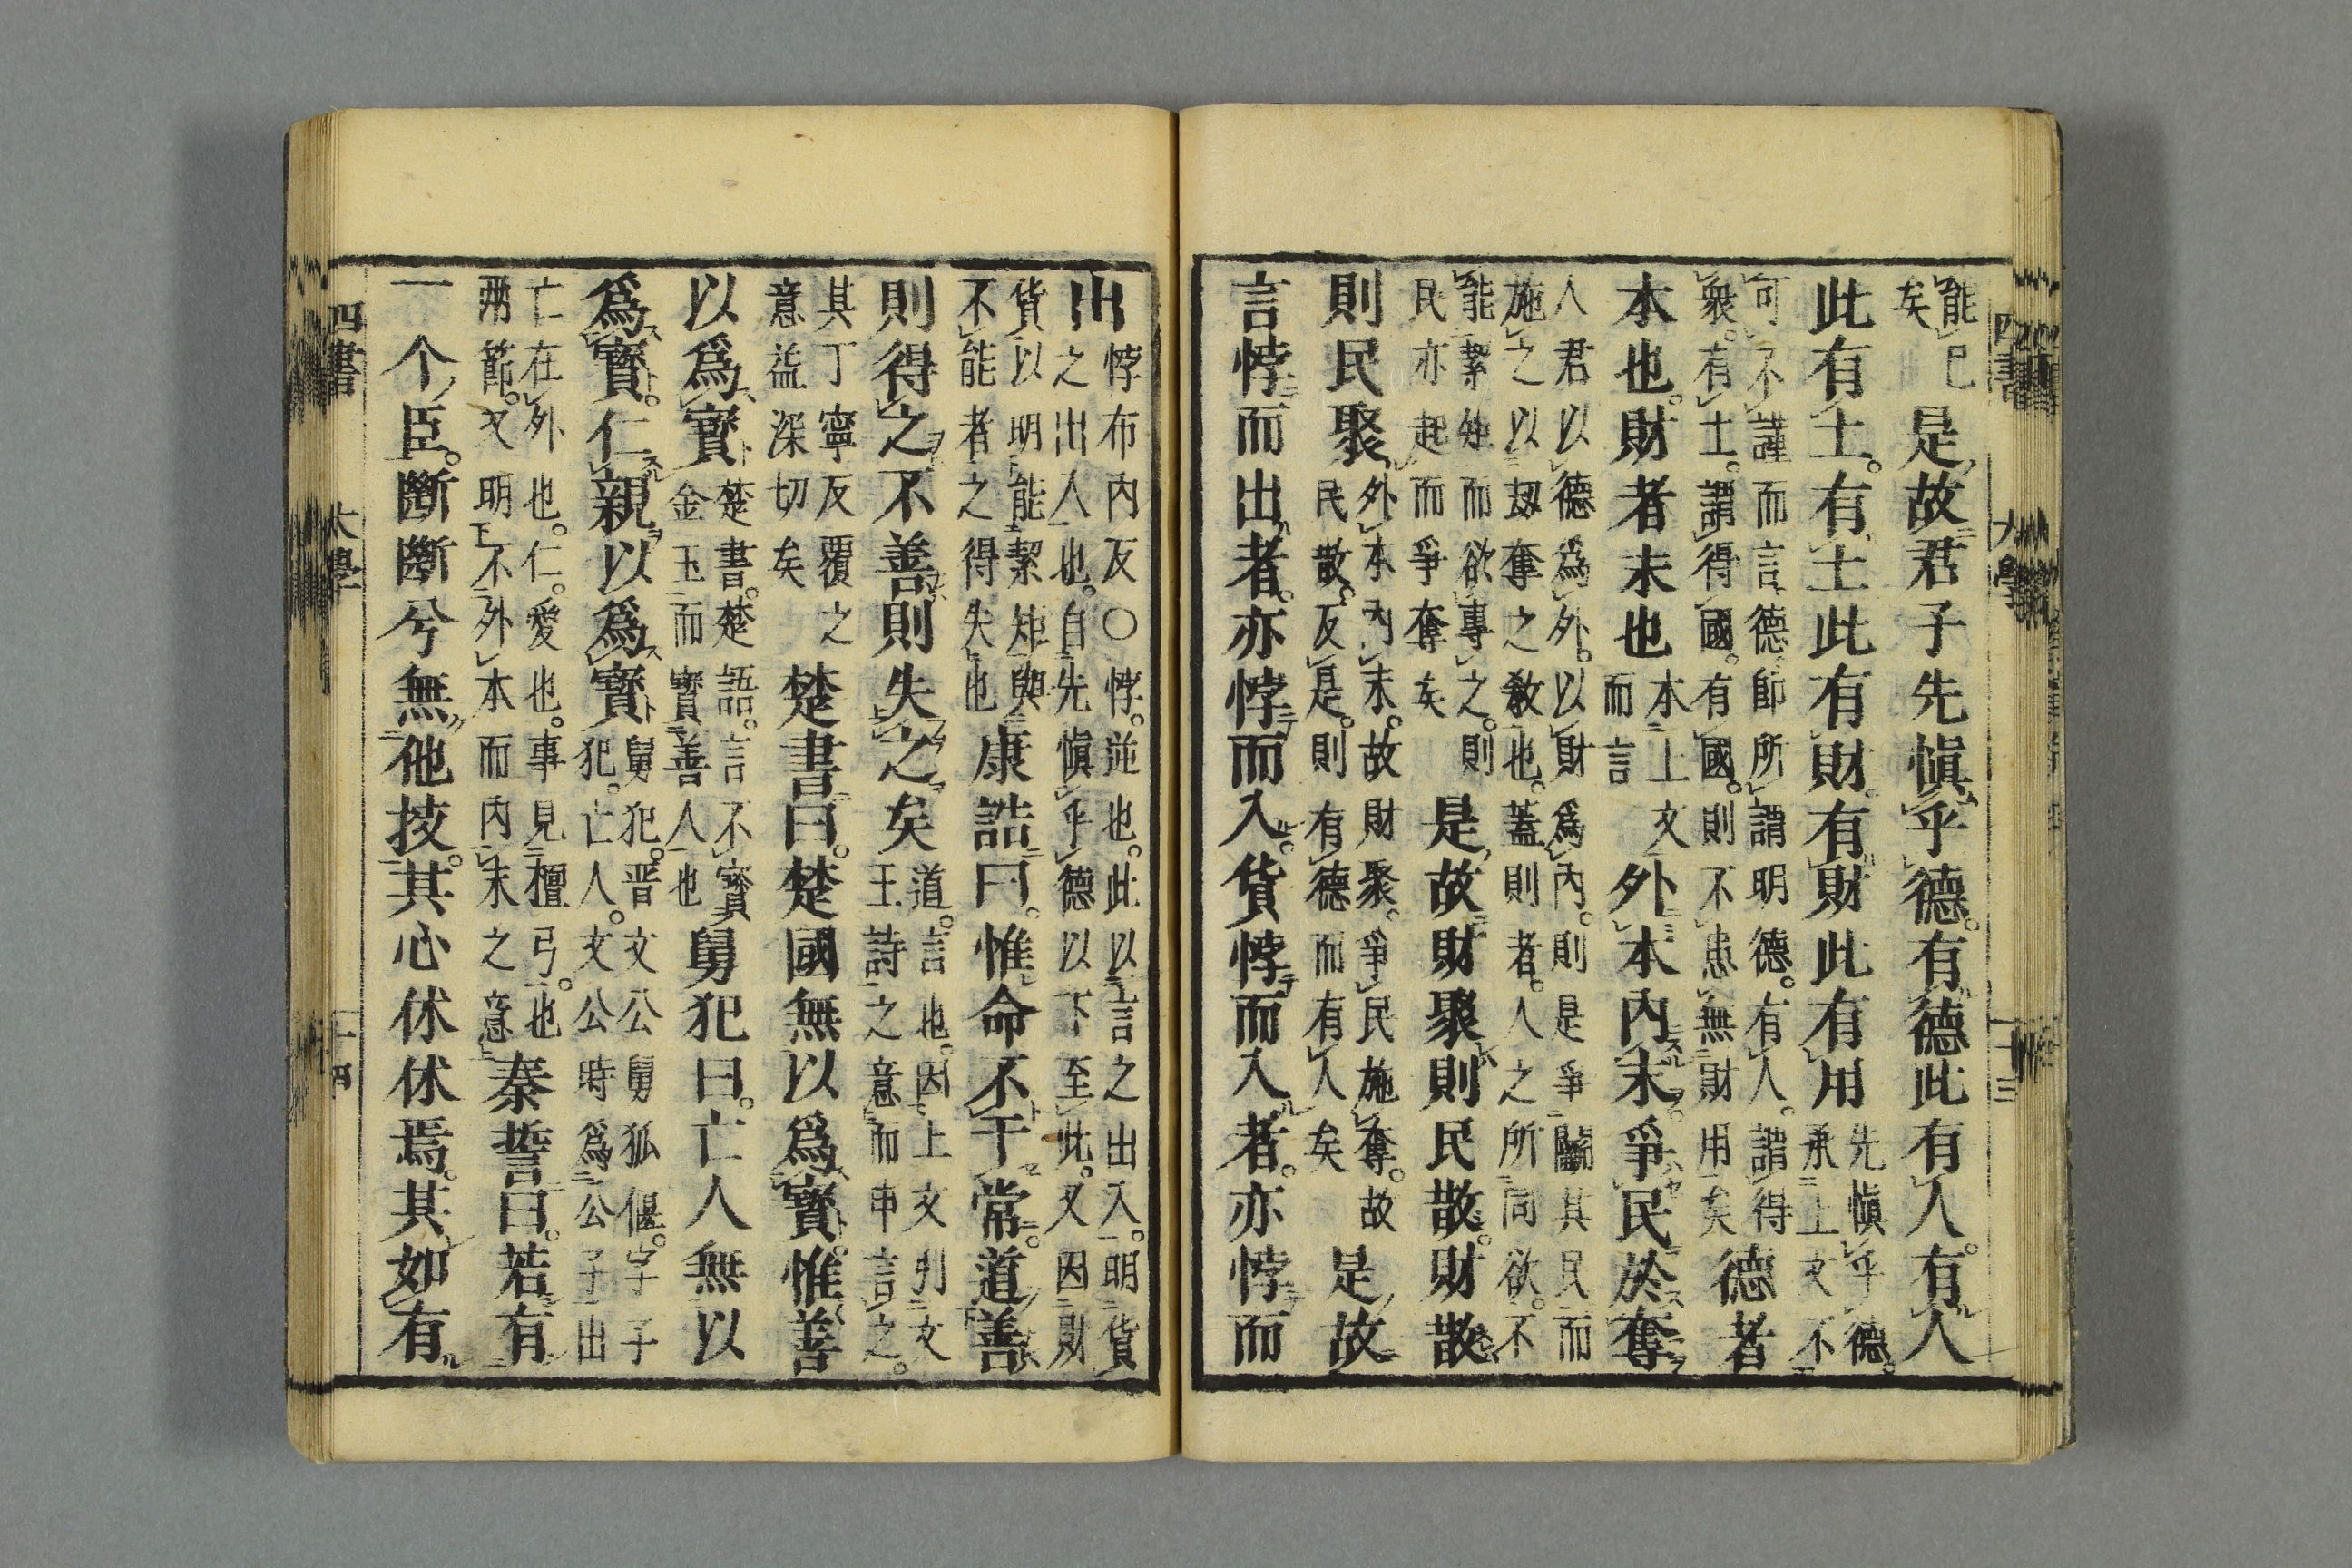 四書　大學　十三
能已
矣
是故君子先愼乎德。有德此有人。有人
此有土。有土此有財。有財此有用
先愼乎德。
承上文不
可不謹而言德。卽所謂明德。有人。謂得
衆。有土。謂得國。有國。則不患無財用矣
德者
本也。財者末也
本上文
而言
外本內末。爭民施奪
人君以德爲外。以財爲內。則是爭鬭其民而
施之以刼奪之敎也。蓋財者。人之所同欲。不
能絜矩而欲專之。則
民亦起而爭奪矣
是故財聚則民散。財散
則民聚
外本內末。故財聚。爭民施奪。故
民散。反是。則有德而有人矣
是故
言悖而出者。亦悖而入。貨悖而入者。亦悖而
出
悖布內反○悖。逆也。此以言之出入。明貨
之出入也。自先愼乎德以下至此。又因財
貨以明能絜矩與
不能者之得失也
康誥曰。惟命不于常。道善
則得之不善則失之矣
道。言也。因上文引文
王詩之意而申言之。
其丁寧反覆之
意益深切矣
楚書曰。楚國無以爲寶。惟善
以爲寶
楚書。楚語。言不寶
金玉而寶善人也
舅犯曰。亡人無以
爲寶。仁親以爲寶
舅犯。晋文公舅狐偃。字子
犯。亡人。文公時爲公子出
亡在外也。仁。愛也。事見檀弓。也
兩節。又明不外本而內末之意
秦誓曰。若有
一个臣。斷斷兮無他技。其心休休焉。其如有
四書　大學　十四